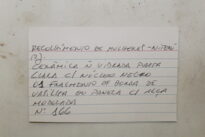 RECOLHIMENTO DE MULHERES - NITERÓI
17).
CERÂMICA Ñ VIDRADA PASTA
CLARA C/ NÚCLEO NEGRO
01 FRAGMENTO DE BORDA DE
VASILHA OU PANELA C/ ALÇA
MODELADA
Nº 166